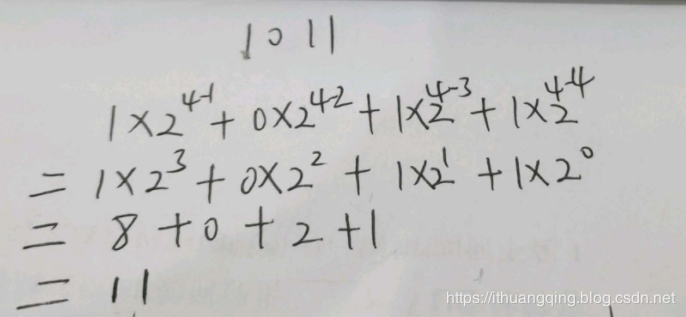 1011
1×2^{4-1}+0×2^{4-2}+1×2^{4-3}+1×2^{4-4}
=1×2^3+0×2^2+1×2^1+1×2^0
=8+0+2+1
=11
https://ithuangqing.blog.csdn.net